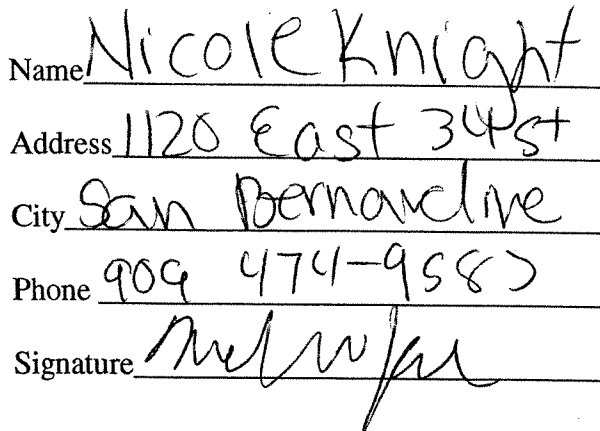 Name Nicole Knight
Address 1120 East 34 st
City San Bernardine
Phone 909 474-9587
Signature